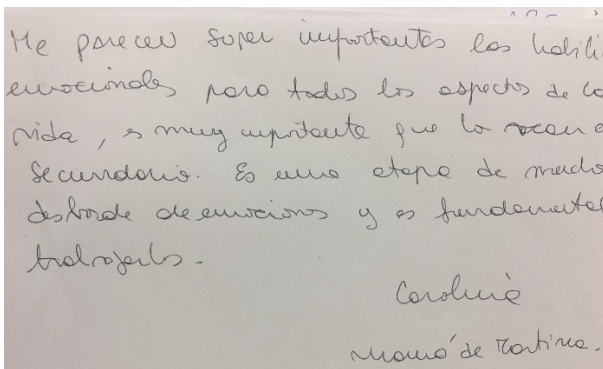 Me parecen super importantes las habili
emocionales para todos los aspectos de la
vida, es muy importante que lo vean e
Secundario. Es una etapa de mucho
desborde de emociones y es fundamental
trabajarlos.
Carolina
Mamá de Martina.